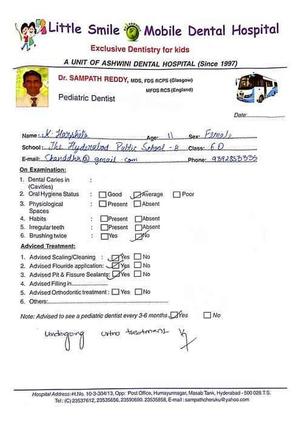 Little Smile Mobile Dental Hospital
Exclusive Dentistry for kids
A UNIT OF ASHWINI DENTAL HOSPITAL (Since 1997)
Dr. SAMPATH REDDY, MDS, FDS RCPS (Glasgow)
MFDS RCS (England)
Pediatric Dentist
Date:
Name: K Harshita Age: 11 Sex: Female
School: The Hyderabad Public School - R Class: 6 D
E-mail: @gmail.com Phone:
On Examination:
1. Dental Caries in :
(Cavities)
2. Oral Hygiene Status : Good Average Poor
3. Physiological : Present Absent
Spaces
4. Habits : Present Absent
5. Irregular teeth : Present Absent
6. Brushing twice : Yes No
Adviced Treatment:
1. Advised Scaling/Cleaning : Yes No
2. Advised Flouride application: Yes No
3. Advised Pit & Fissure Sealants: Yes No
4. Advised Filling in
5. Advised Orthodontic treatment : Yes No
6. Others:
Note: Advised to see a pediatric dentist every 3-6 months Yes No
Undergoing ortho treatment
Hospital Address: H.No. 10-3-304/13, Opp: Post Office, Humayunnagar, Masab Tank, Hyderabad - 500 028 T.S.
Tel: (C) 23537612, 23535656, 23590690, 23535858, E-mail : sampathcheruku@yahoo.com